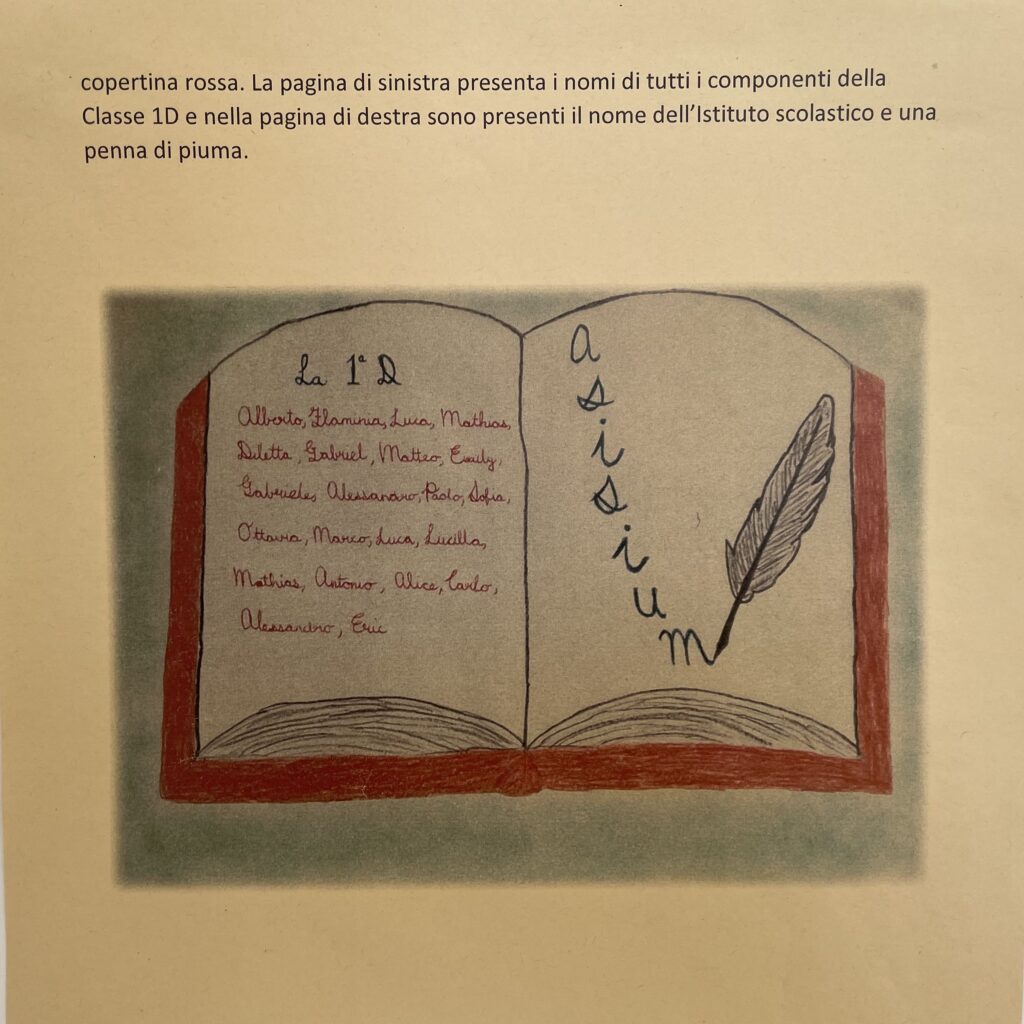 copertina rossa. La pagina di sinistra presenta i nomi di tutti i componenti della
Classe 1D e nella pagina di destra sono presenti il nome dell'Istituto scolastico e una
penna di piuma.
La 1ª D
Alberto, Flaminia, Luca, Mathias,
Diletta, Gabriel, Matteo, Emily,
Gabriele, Alessandro, Paolo, Sofia,
Ottavia, Marco, Luca, Lucilla,
Mathias, Antonio, Alice, Carlo,
Alessandro, Eric
a
s
i
s
i
u
m